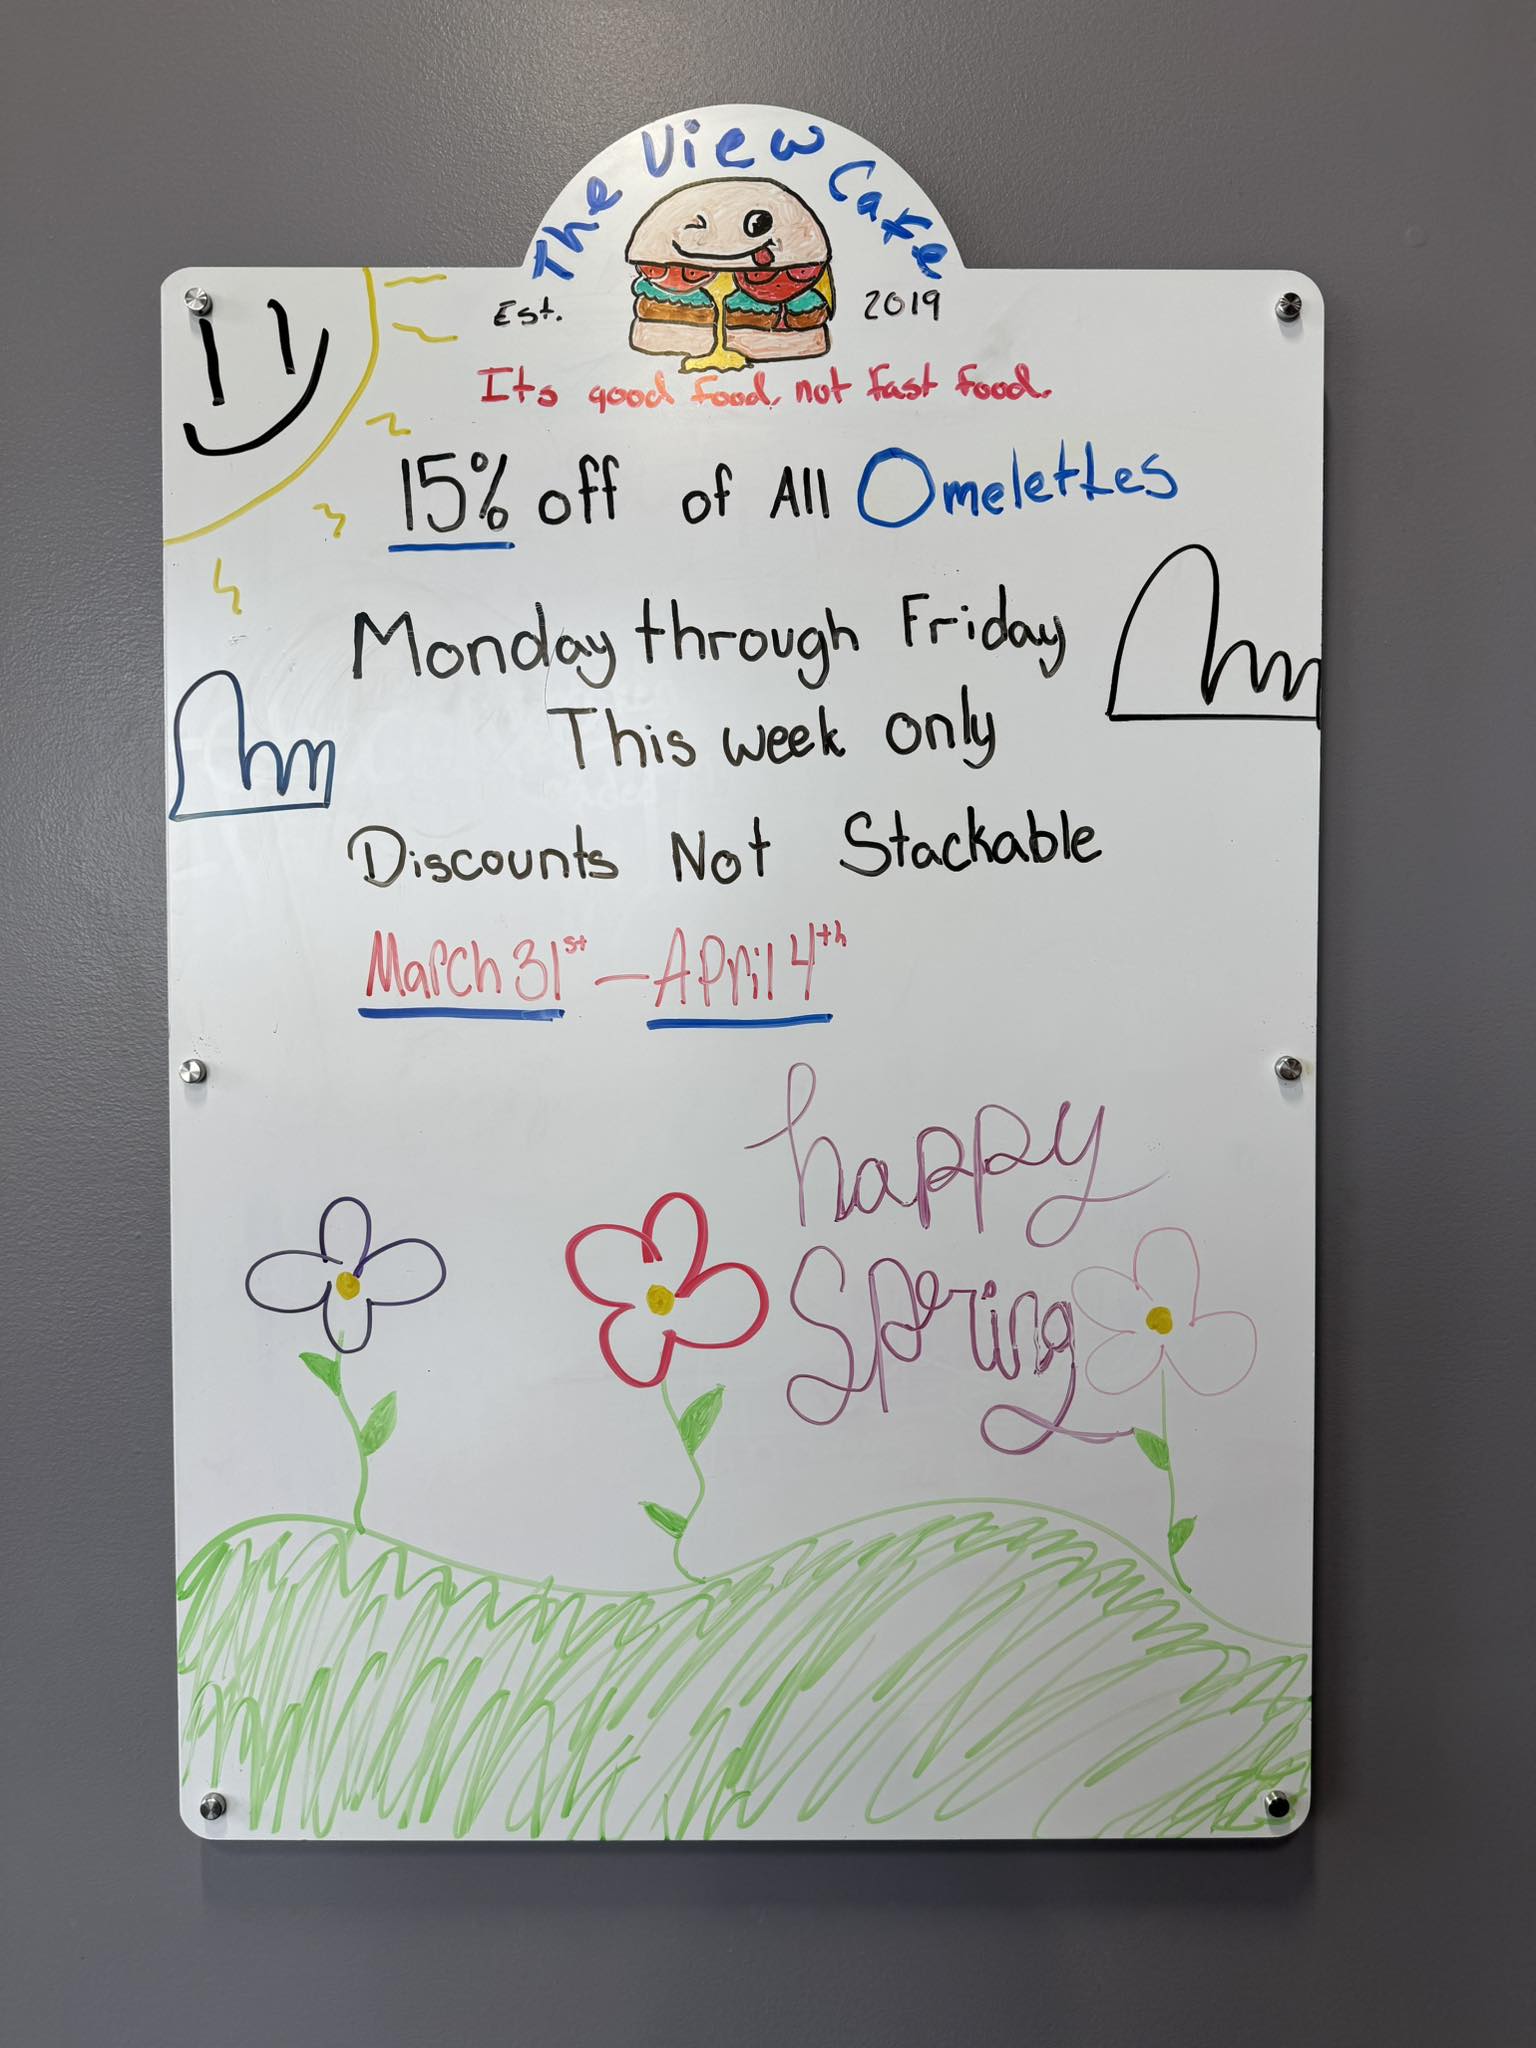 The View Cafe
Est. 2019
Its good food, not fast food.
15% off of All Omelettes
Monday through Friday
This week only
Discounts Not Stackable
March 31st - April 4th
happy
Spring